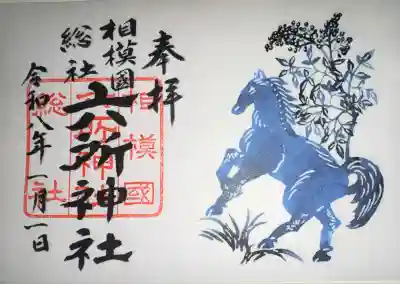 奉拝
相模國
総社
六所神社
令和八年一月一日
相模國
六所神社
総社